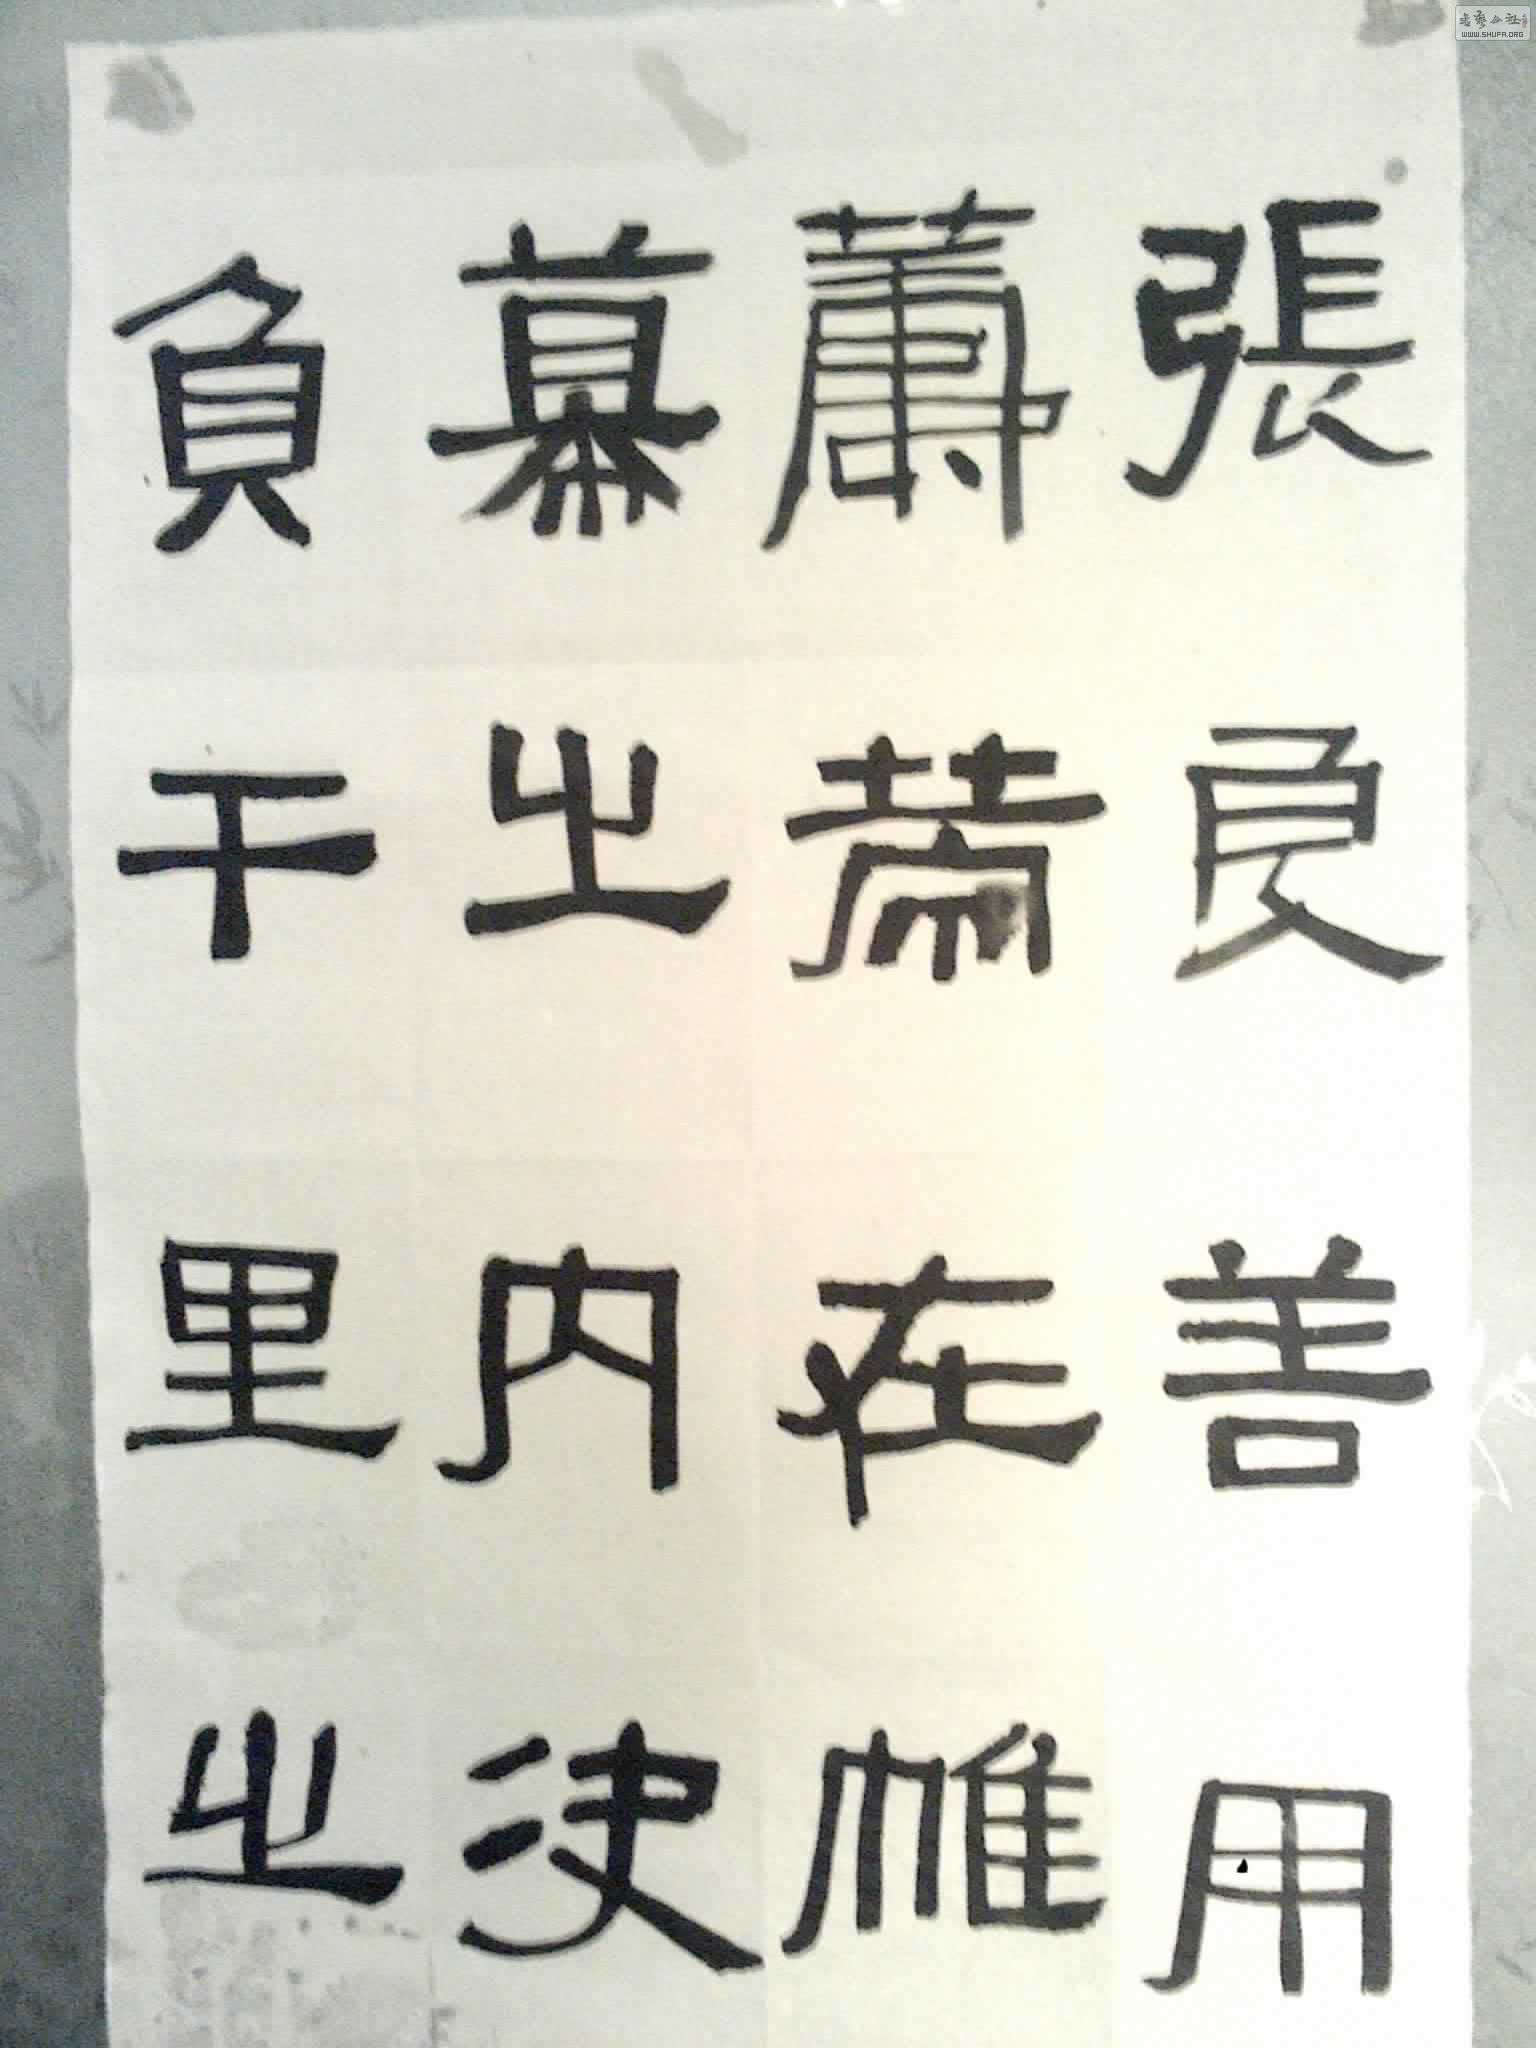 張良善用
籌策在帷
幕之內決
負千里之
書藝公社
WWW.SHUFA.ORG